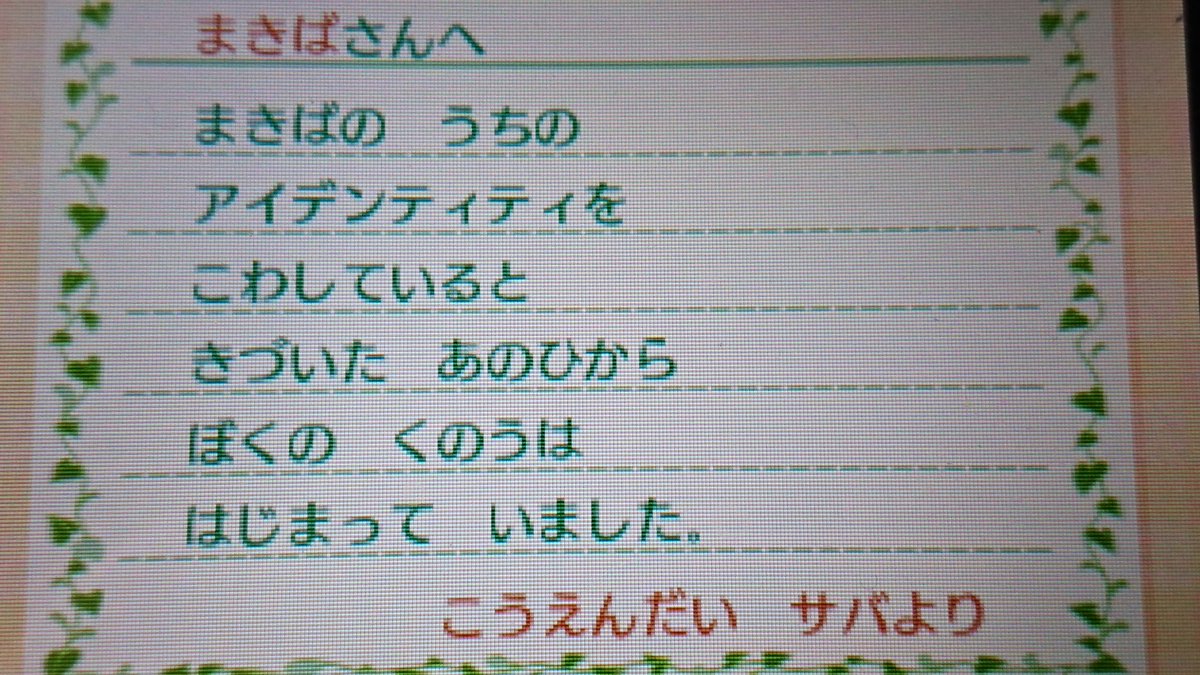 まきばさんへ
まきばの　うちの
アイデンティティを
こわしていると
きづいた　あのひから
ぼくの　くのうは
はじまって　いました。
こうえんだい　サバより